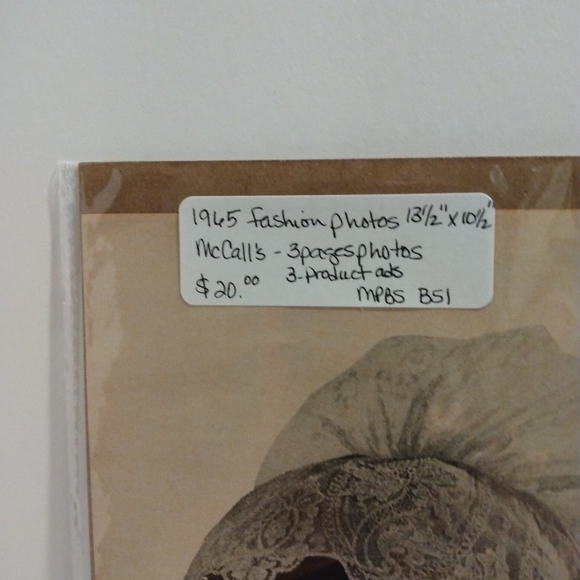 1965 fashion photos 13½" x 10½"
McCall's - 3 pages photos
3-product ads
$20.00 MPBS B51